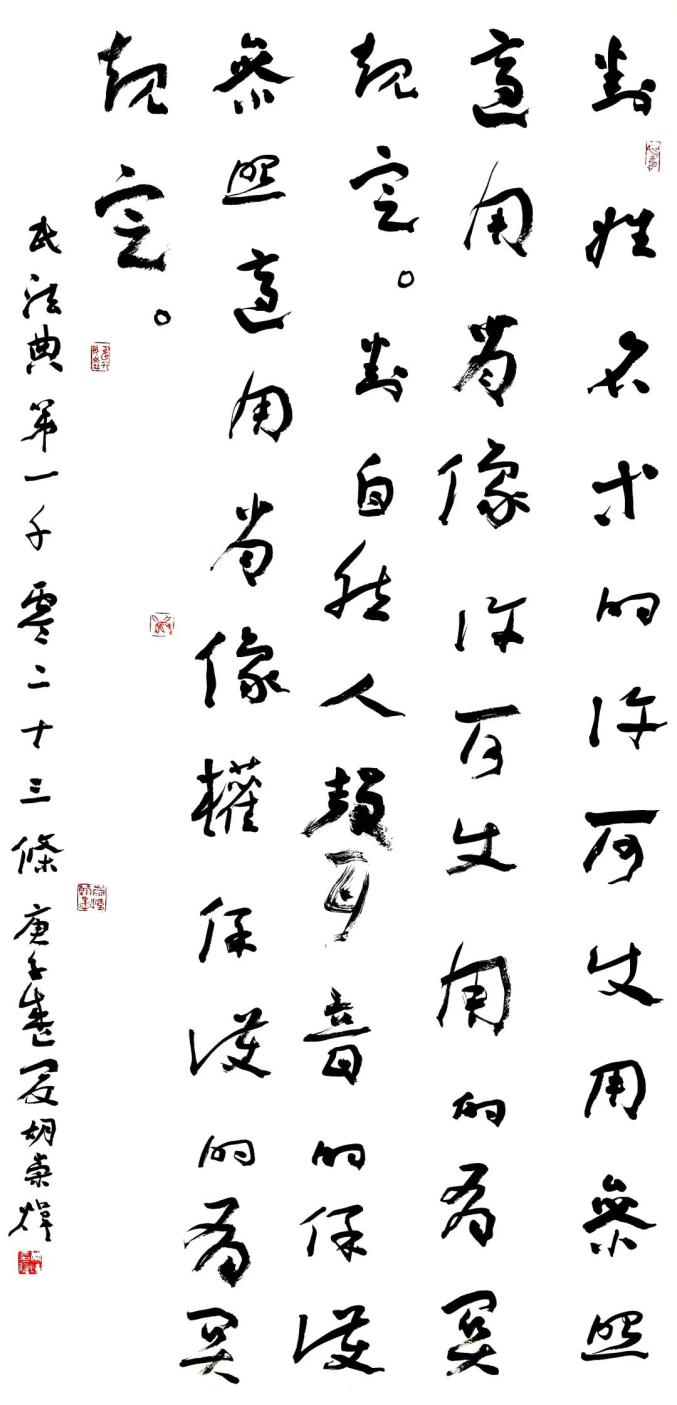 對姓名等的許可使用參照
適用肖像許可使用的有關
規定。對自然人聲音的保護
參照適用肖像權保護的有關
規定。
民法典第一千零二十三條 庚子盛夏胡崇煒